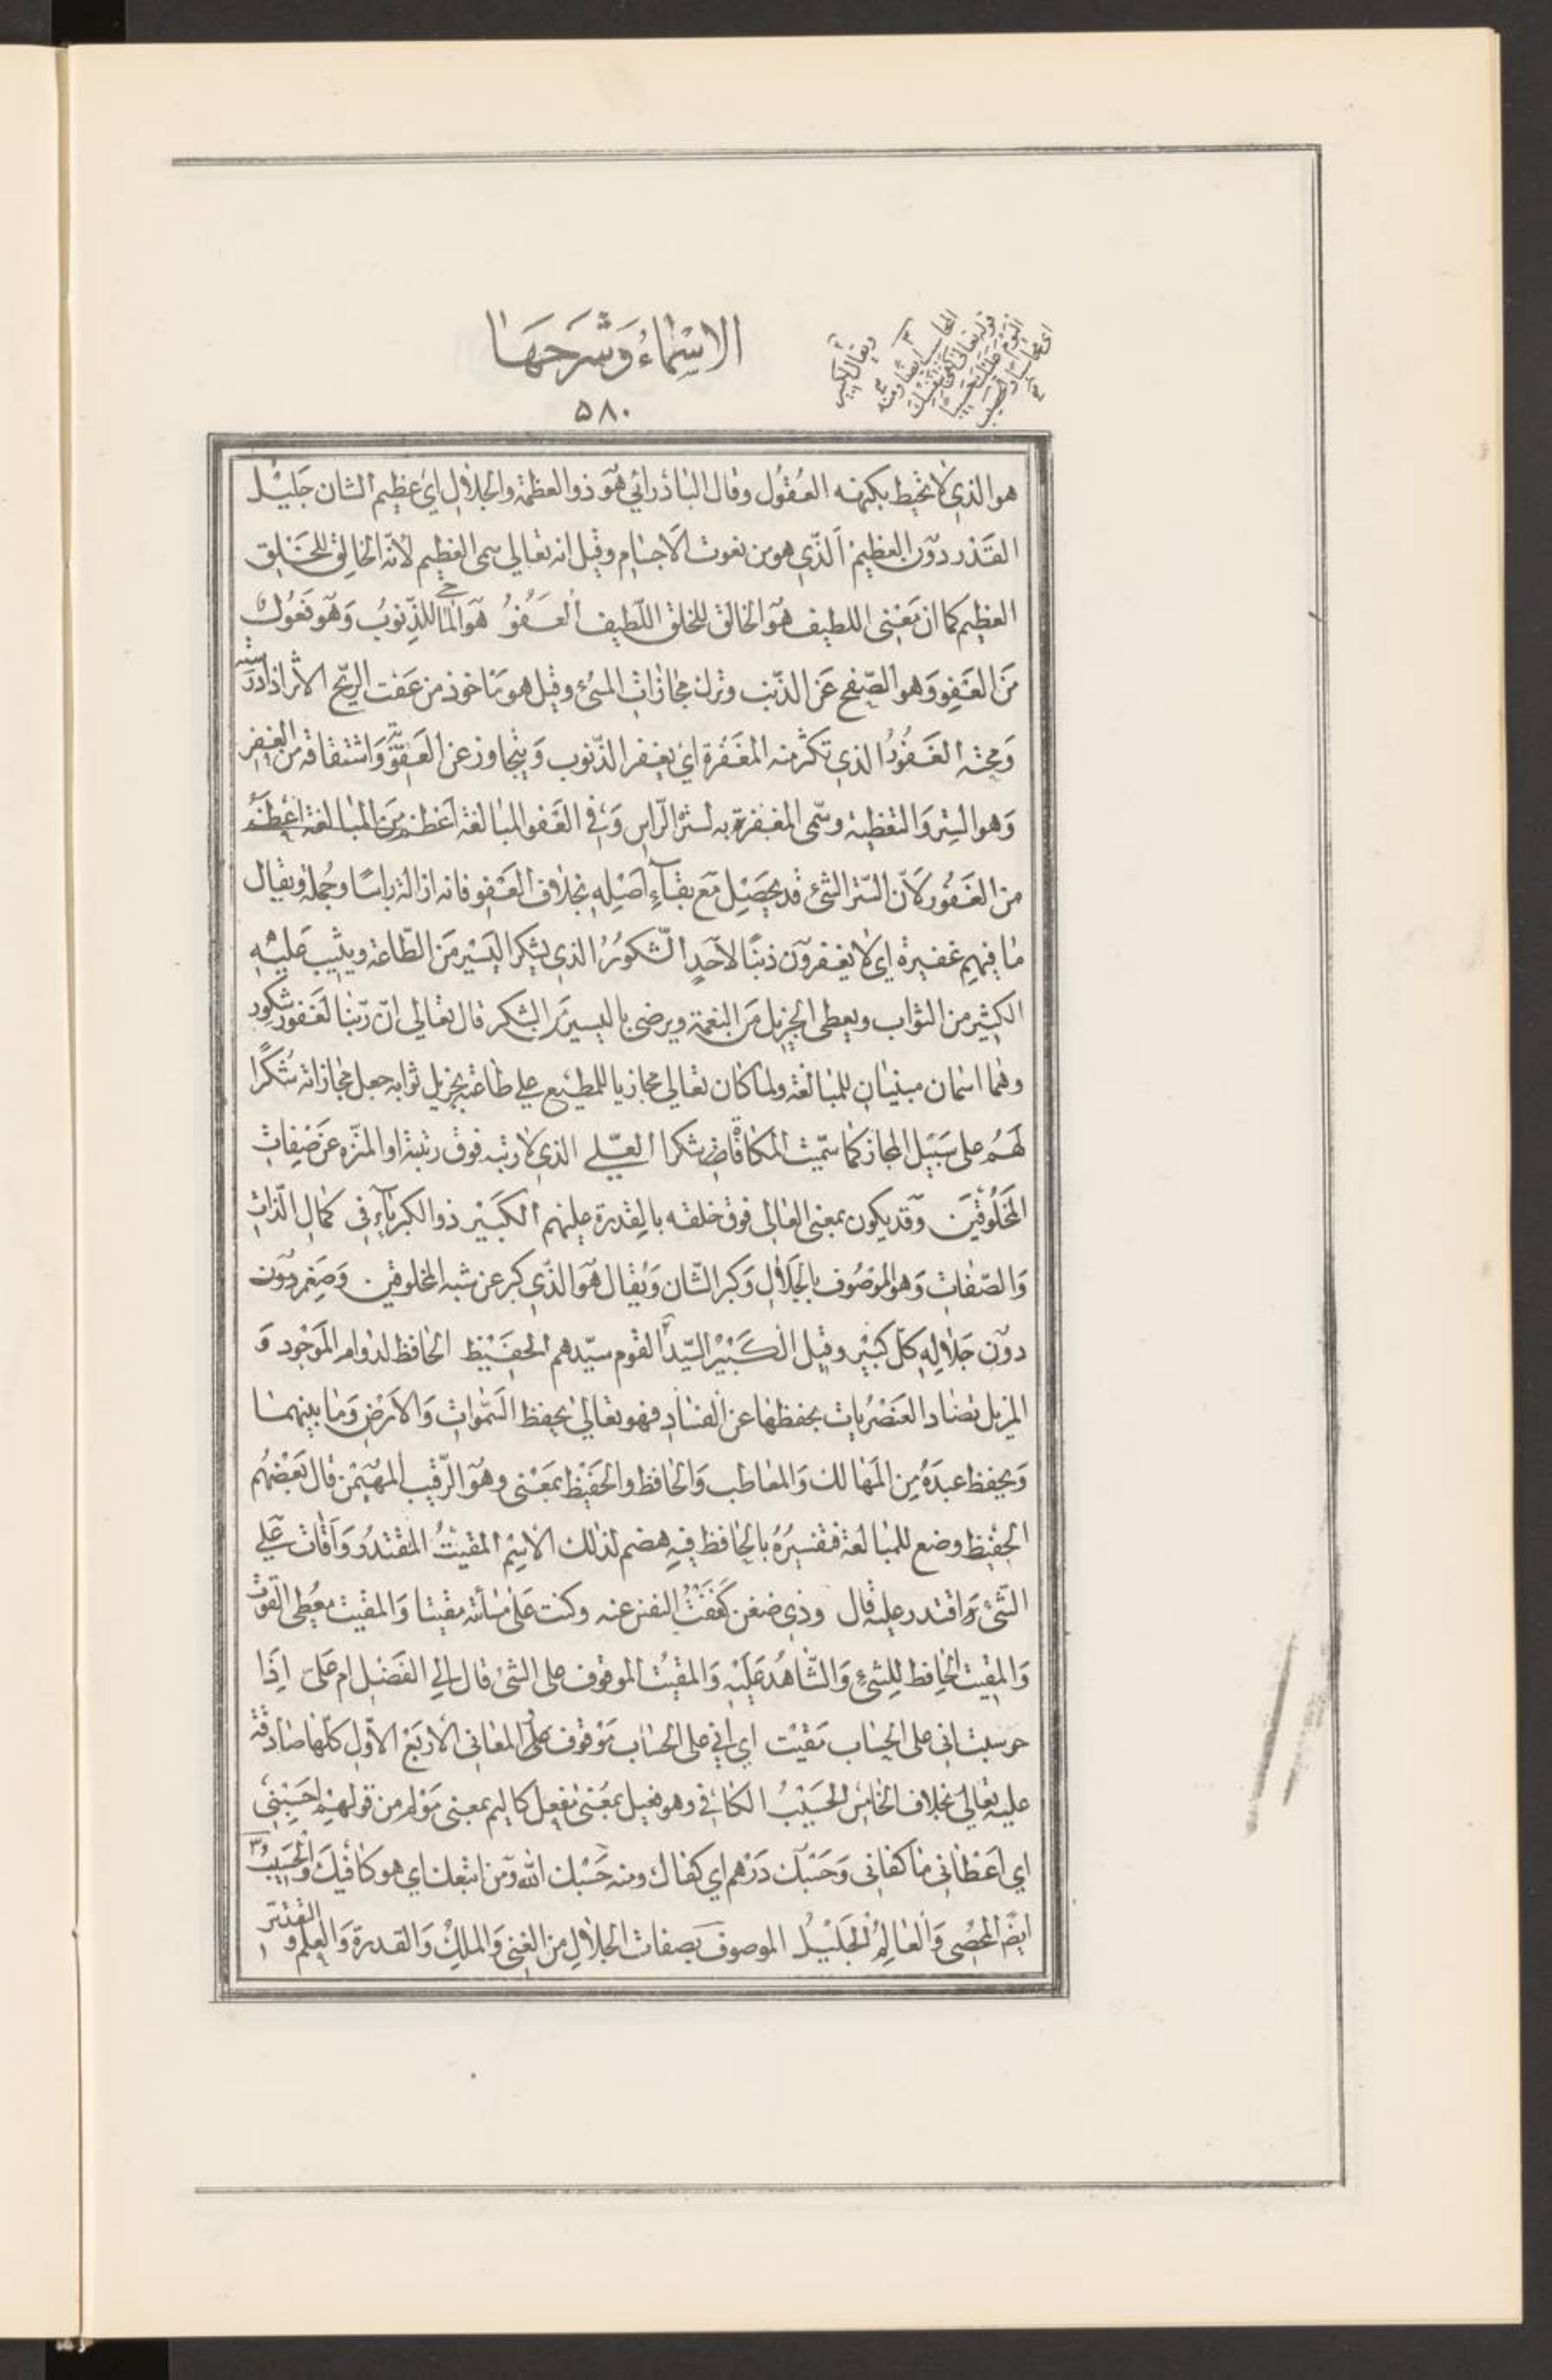 الاسماء وشرحها
۵۸۰
ويقال كبير
المحاسب ايضا ومنه
قوله تعالى كفى بنفسك
اليوم عليك حسيبا
اى محاسبا
هو الذي لا تحيط بكنهه العُقُول وقال الباذرائي هو ذو العظمة والجلال اي عظيم الشان جليل
القدر دون العظيم الذي هو من نعوت الاجسام وقيل انه تعالي سمى العظيم لانه الخالق للخلق
العظيم كما ان معنى اللطيف هو الخالق للخلق اللطيف العَفُوُّ هو الماحي للذنوب وهو فعول
من العفو وهو الصفح عن الذنب وترك مجازاة المسئ وقيل هو ماخوذ من عفت الريح الاثر اذا درسته
ومحته الغفور الذي تكثر منه المغفرة اي يغفر الذنوب ويتجاوز عن العقوبة واشتقاقه من الغفر
وهو الستر والتغطية وسمى المغفر به لستره الراس وفي العفو المبالغة اعظم من المبالغة اعظم
من الغفور لان الستر الشئ قد يحصل مع بقاء اصله بخلاف العفو فانه ازالة راسًا وجملة ويقال
ما فيهم غفيرة اى لا يغفرون ذنبًا لاحدٍ الشكور الذي يشكر اليسير من الطاعة ويثيب عليه
الكثير من الثواب ويعطى الجزيل من النعمة ويرضى باليسير من الشكر قال تعالي ان ربنا لغفور شكور
وهما اسمان مبنيان للمبالغة ولما كان تعالي مجازيا للمطيع علي طاعته بجزيل ثوابه جعل مجازاته شكرًا
لهم على سبيل المجاز كما سميت المكافاة شكرا العلي الذي لا رتبة فوق رتبته او المنزه عن صفات
المخلوقين وقد يكون بمعنى العالى فوق خلقه بالقدرة عليهم الكبير ذو الكبرياء فى كمال الذات
والصفات وهو الموصوف بالجلال وكبر الشان ويقال هو الذي كبر عن شبه المخلوقين وصغر دون
دون جلاله كل كبير وقيل الكبير السيد القوم سيدهم الحفيظ الحافظ لدوام الموجود و
المزيل تضاد العنصريات بحفظها عن الفساد فهو تعالي يحفظ السموات والارض وما بينهما
ويحفظ عبده من المهالك والمعاطب والحافظ والحفيظ بمعنى وهو الرقيب المهيمن قال بعضهم
الحفيظ وضع للمبالغة فتفسيره بالحافظ فيه هضم لذلك الاسم المقيت المقتدر واقات علي
الشئ واقتدر عليه قال وذي ضغن كففت النفس عنه وكنت على مسائته مقيتا والمقيت معطى القوت
والمقيت الحافظ للشئ والشاهد عليه والمقيت الموقوف على الشئ قال الي الفضل ام على اذا
حوسبت اني على الحساب مقيت اي اني على الحساب موقوف المعاني الاربع الاول كلها صادقة
عليه تعالي بخلاف الخامس الحسيب الكافى وهو فعيل بمعنى مفعل كاليم بمعنى مؤلم من قولهم احسبني
اي اعطاني ما كفانى وحسبك درهم اي كفاك ومنه حسبك الله ومن اتبعك اي هو كافيك والحسيب
ايضًا المحصى والعالم الجليل الموصوف بصفات الجلال من الغنى والملك والقدرة والعلم و